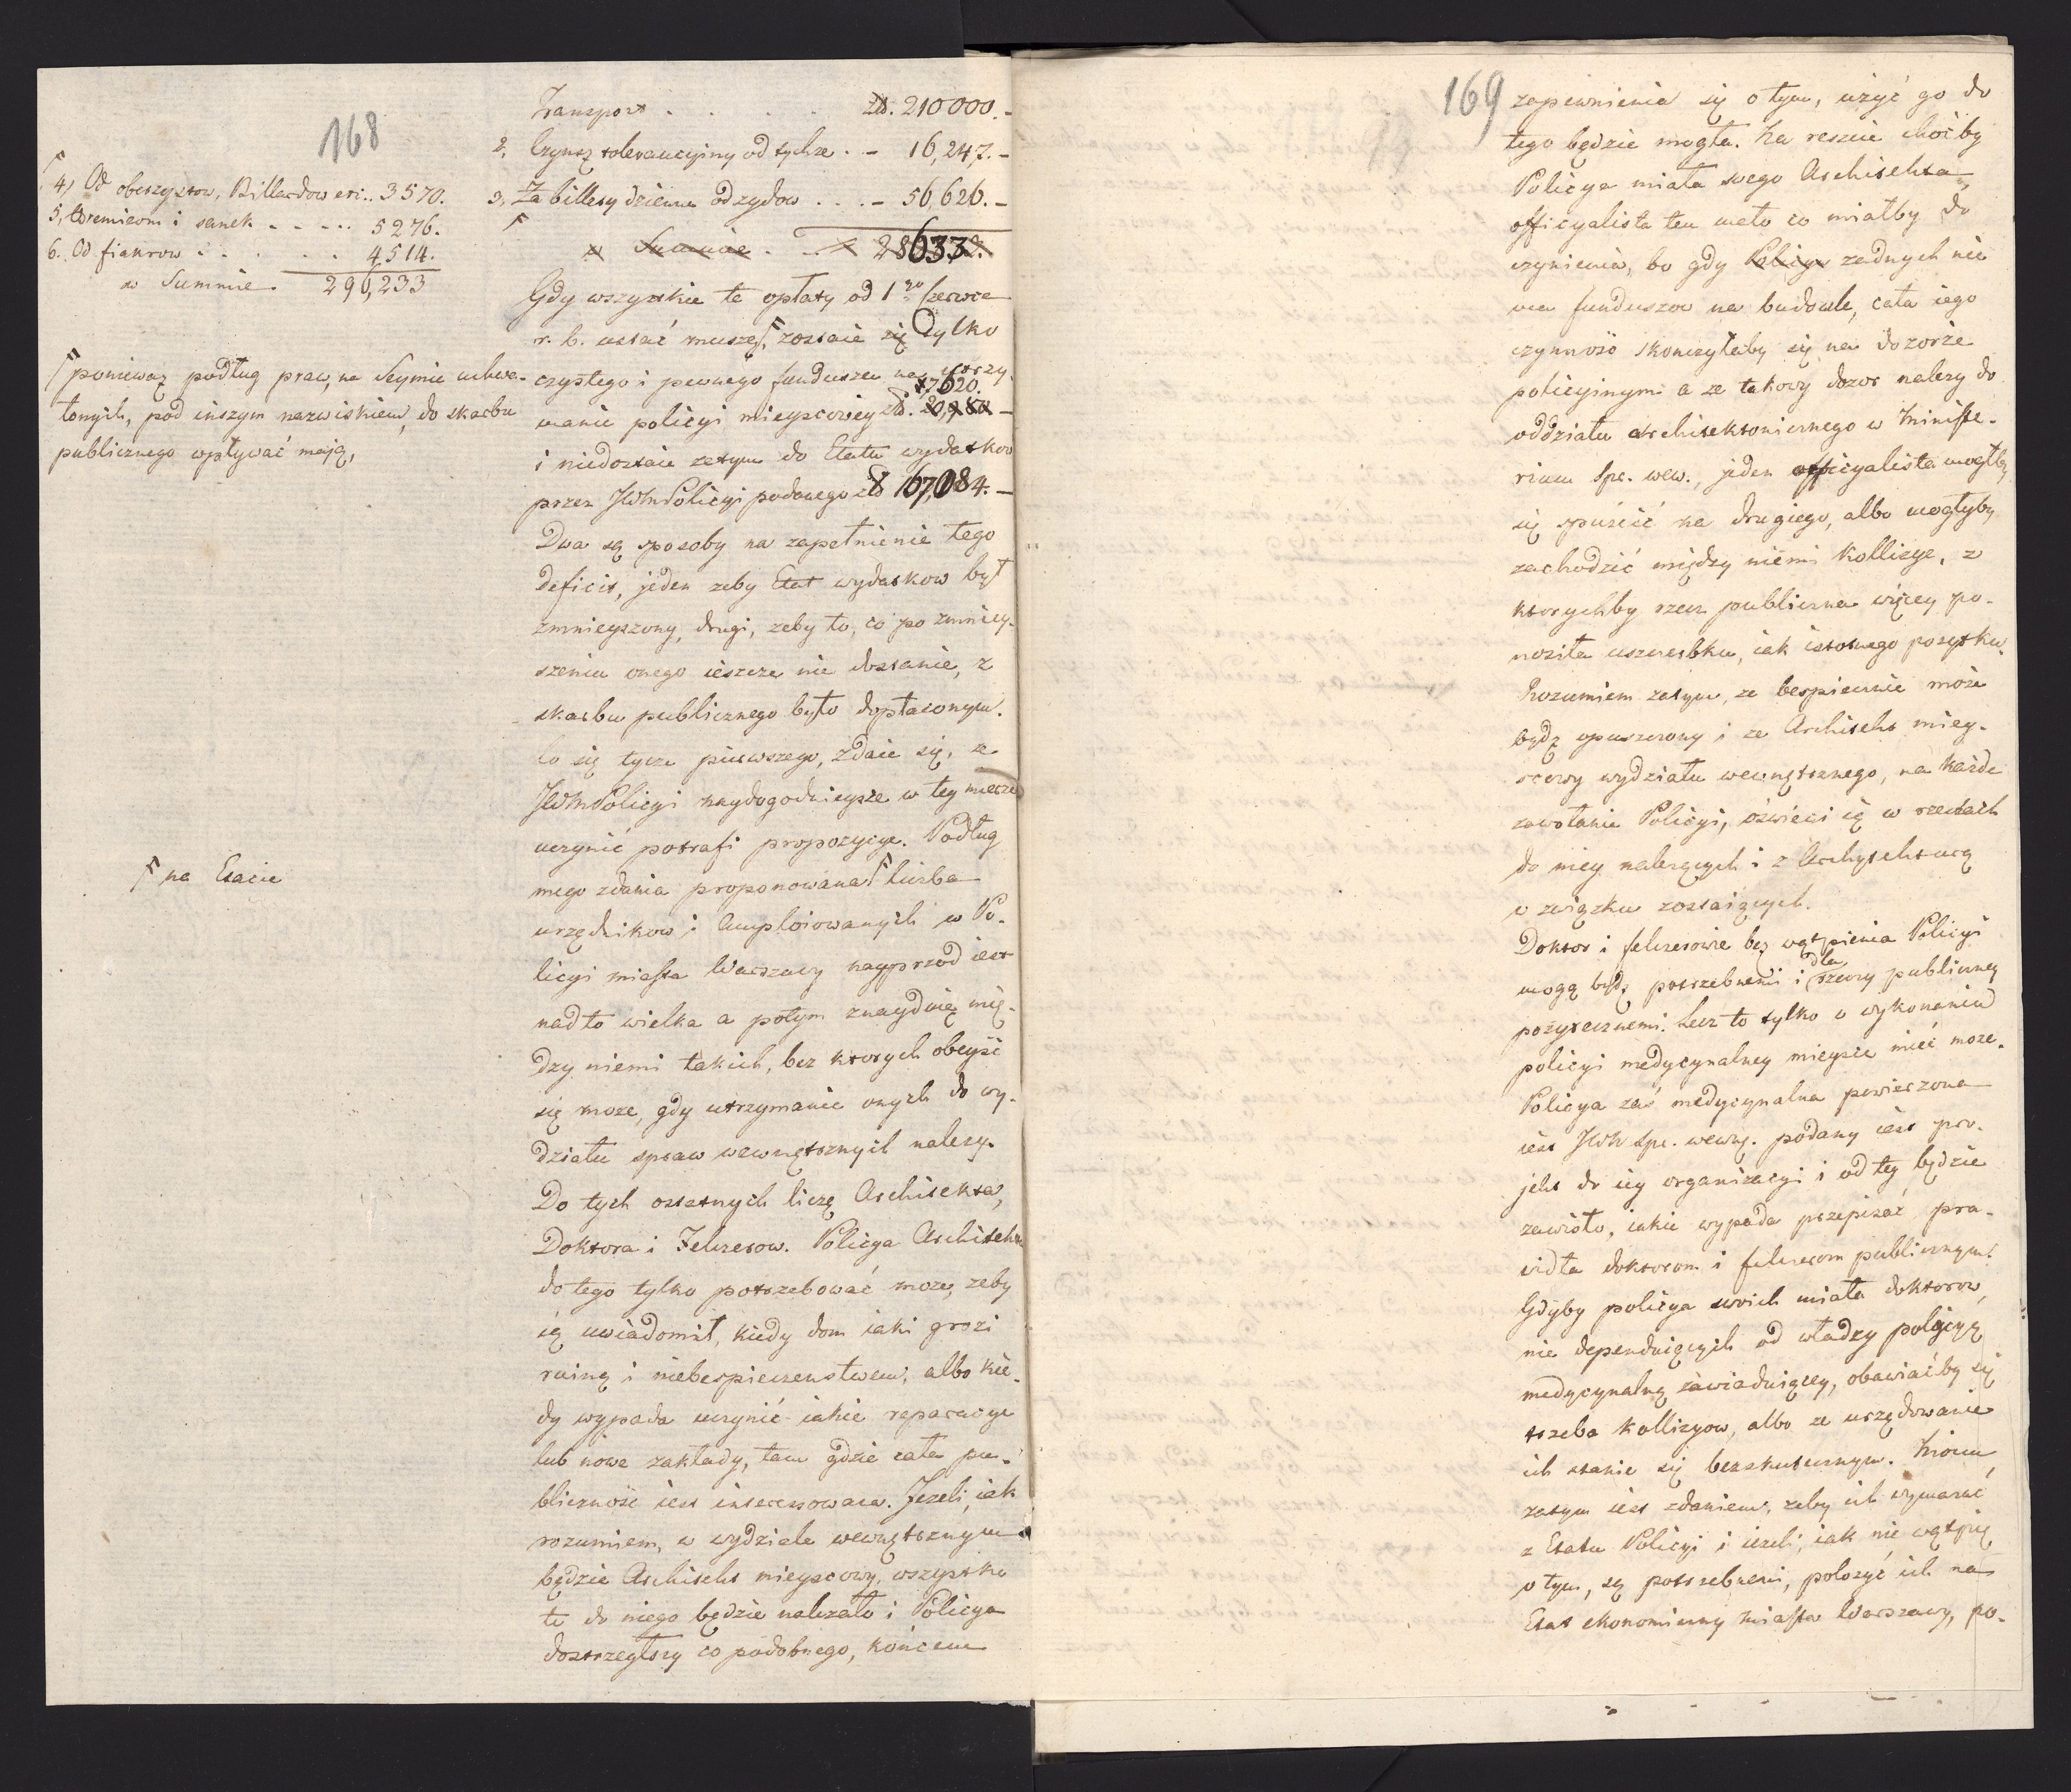 168
4, Od obcszystow, Billardow etc.. 3570.
5, Woremieom i sanek - - - .. 5276.
6. Od fiakrow . . . . . 4514.
w Summie. 296,233
poniewaz podług praw, na Seymie uchwa-
lonych, pod inszym nazwiskiem, do skarbu
publicznego wpływać mają,
na Etacie
Transport . . . . . zł. 210000.-
2, Czynsz toleracyiny od tychże . - 16,247.-
3, Za billety dzienne od zydow . . . - 56,626.-
w Summie . . . 28633.
Gdy wszystkie te opłaty od 1go Czerwca
r. b. ustać muszą, zostaie się tylko
czystego i pewnego funduszu na utrzy-
17620.
manie policyi mieyscowey zł. -
i niedostaie zatym do Etatu wydatkow
przez JWM Policyi podanego zł 167,084.-
Dwa są sposoby na zapełnienie tego
Deficit, jeden zeby Etat wydatkow był
zmnieyszony, drugi, zeby to, co po zmniey-
szeniu onego ieszcze nie dostanie, z
skarbu publicznego było dopłaconym.
Co się tycze pierwszego, zdaie się, ze
JWM Policyi naydogodnieysze w tey mierze
uczynić potrafi propozycye. Podług
mego zdania proponowana liczba
urzędnikow i Amploiowanych w Po-
licyi miasta Warszawy nayprzod iest
nadto wielka a potym znayduię mię-
dzy niemi takich, bez ktorych obeyść
się moze, gdy utrzymanie onych do wy-
działu spraw wewnętrznych nalezy.
Do tych ostatnych liczę Architekta,
Doktora i Felczerow. Policya Architekta
do tego tylko potrzebować moze, zeby
ią uwiadomił, kiedy dom iaki grozi
ruiną i niebespieczenstwem, albo kie-
dy wypada uczynić iakie reparacye
lub nowe zakłady, tam gdzie cała pu-
bliczność iest interessowana. Jezeli, iak
rozumiem, w wydziale wewnętrznym
będzie Architekt mieyscowy, wszystko
to do niego będzie nalezało i Policya
dostrzegłszy co podobnego, końcem
169
zapewnienia się o tym, użyć go do
tego będzie mogła. Na reszcie choćby
Policya miała swego Architekta,
officyalista ten mało co miałby do
czynienia, bo gdy Policya zadnych nie
ma funduszow na budowle, cała iego
czynność skonczyłaby się na dozorze
policyinym a ze takowy dozor nalezy do
oddziału architektonicznego w Ministe-
rium Spr. wew., jeden officyalista mogłby
się spuścić na drugiego, albo mogłyby
zachodzić między niemi kollizye, z
ktorychby rzecz publiczna więcey po-
nosiła uszczerbku, iak istotnego pozytku.
Rozumiem zatym, ze bespiecznie może
bydz opuszczony i ze Architekt miey-
scowy wydziału wewnętrznego, na każde
zawołanie Policyi, oświeci ią w rzeczach
do niey nalezących i z Architekturą
w związku zostaiących.
Doktor i felczerowie bez wątpienia Policyi
mogą bydz potrzebnemi i dla rzeczy publiczney
pożytecznemi. Lecz to tylko w wykonaniu
policyi medycynalney mieysce mieć moze.
Policya zaś medycynalna powierzona
iest JWM Spr. wewn. podany iest pro-
jekt do iey organizacyi i od tey będzie
zawisło, iakie wypada przepisać pra-
widła doktorom i felczerom publicznym.
Gdyby policya swoich miała doktorow,
nie dependuiących od władzy policyą
medycynalną zawiaduiącey, obawiać by się
trzeba kollizyow, albo ze urzędowanie
ich stanie się bezskutecznym. Moim
zatym iest zdaniem, zeby ich wymazać
z Etatu Policyi i iezeli, iak nie wątpię
o tym, są potrzebnemi, połozyć ich na
Etat ekonomiczny miasta Warszawy, po-